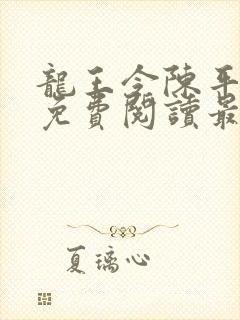 龍王令陳平
免費閱讀最
夏璃心